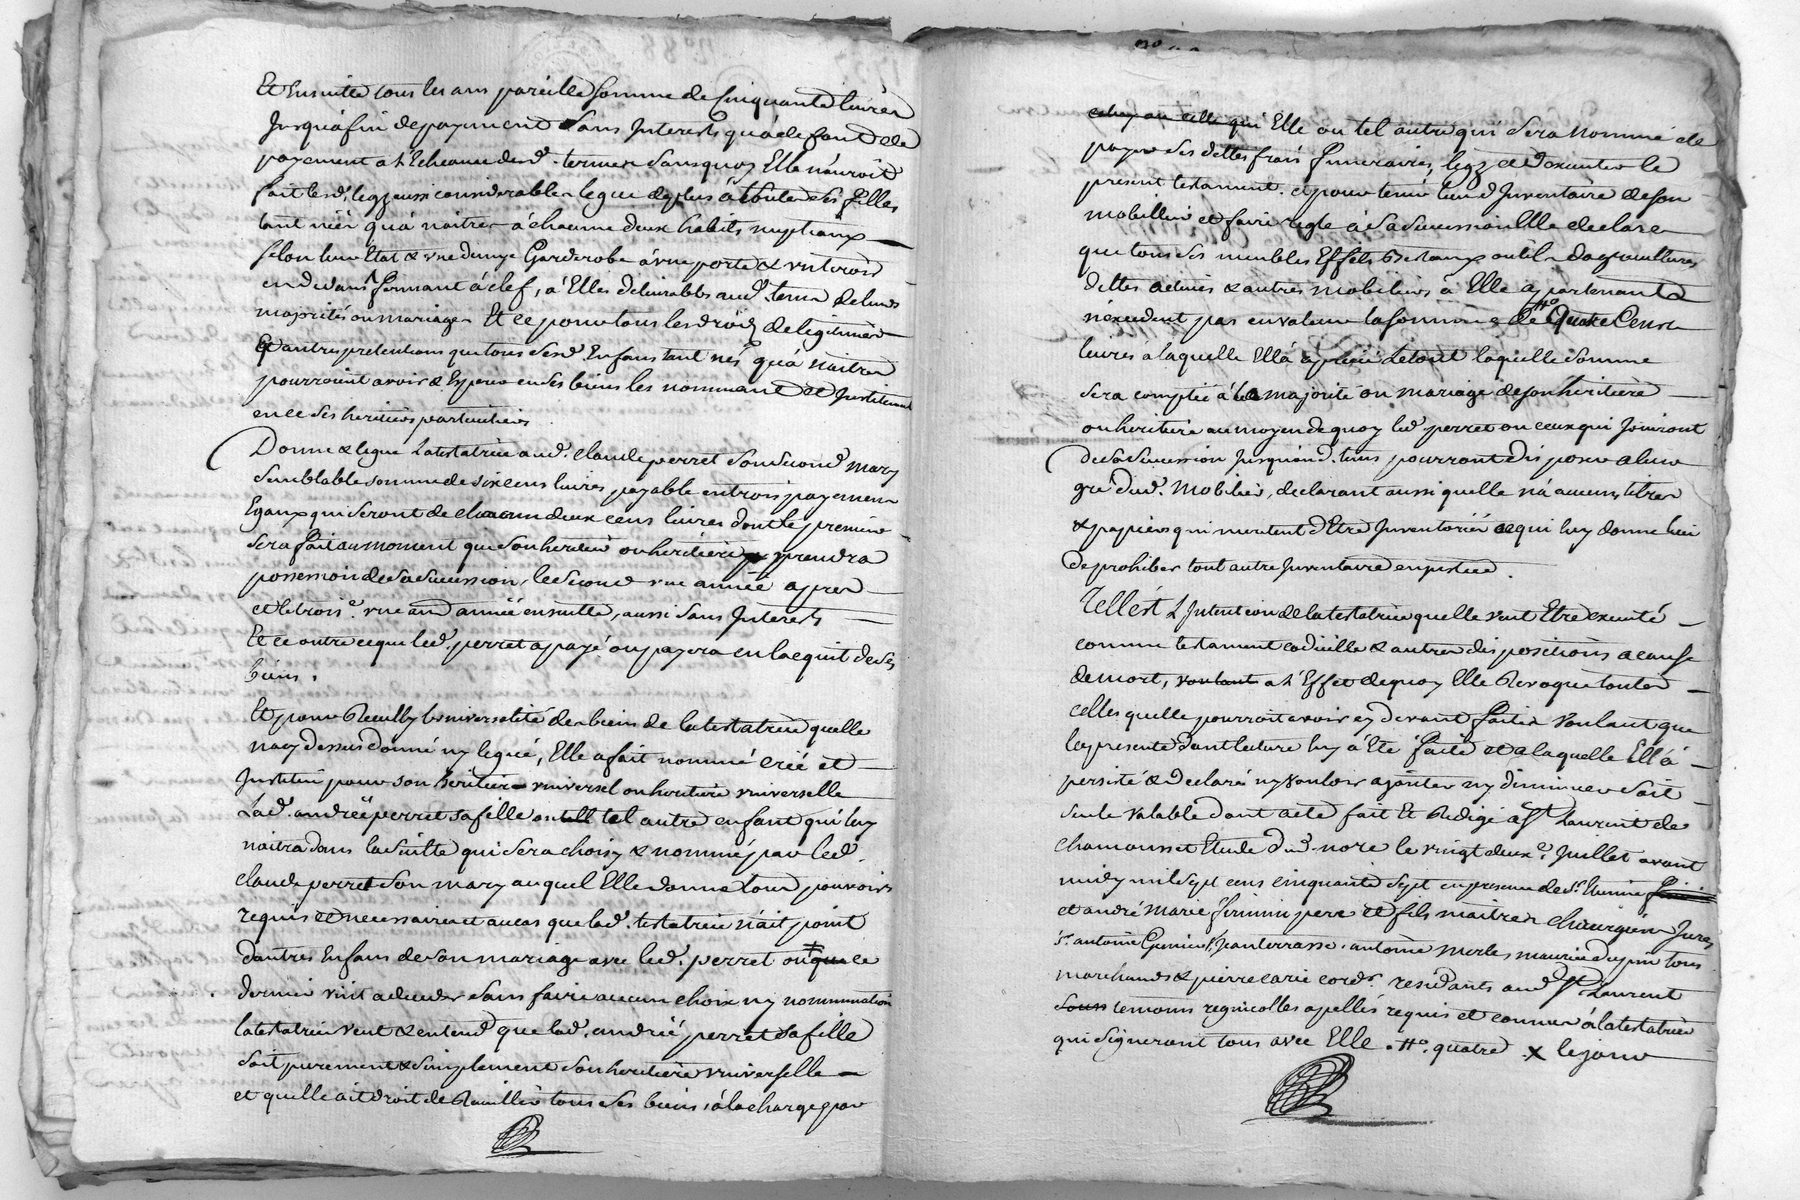 Et Ensuitte tous les ans pareille somme de Cinquante livres
Jusqu'à fin de payement sans Interests qu'a defaut de
payement a l'Echeance desd. termes sans quoy Elle n'auroit
fait lesd. legz aussi considerables legue de plus à toutes ses filles
tant nées qu'à naitre à chacune deux habits nuptiaux
selon leur Etat & une Garderobe à une porte & un tiroir
en devant fermant à clef, à Elles delivrables aud. tems de leurs
majorités ou mariages Et ce pour tous les droits de legitimes
Et autres pretentions que tous sesd. Enfans tant nés qu'à naitre
pourroint avoir & Esperer en ses biens les nommant et Instituant
en ce ses heritiers particuliers
Donne & legue Latestatrice aud. claude perret son second mary
semblable somme de six cens livres payable en trois payemens
Egaux qui seront de chacun deux cens livres dont le premier
sera fait au moment que son heritier ou heritiere prendra
possession de sa succession, le second une année apres
et le trois.e une année ensuitte, aussi sans Interests
Et ce outre ce que led. perret a payé ou payera en lacquit de ses
biens.
Et pour Reully Luniversalité des biens de latestatrice quelle
na cy dessus donné ny legué, Elle a fait nommé créé et
Institué pour son heritier universel ou heritiere universelle
Lad. andrée perret sa fille ou tel autre enfant qui luy
naitra dans la suitte qui sera choisy & nommé par led.
claude perret son mary auquel Elle donne tous pouvoirs
requis et necessaires et au cas que lad. testatrice n'ait point
dautres Enfans de son mariage avec led. perret ou que ce
dernier vint a deceder sans faire aucun choix ny nommination
latestatrice veut & entend que lad. andrée perret sa fille
soit purement & simplement son heritiere universelle
et quelle ait droit de Recuillir tous ses biens, à la charge par
celuy ou celle qui Elle ou tel autre qui sera nommé de
payer ses dettes frais funeraires, legz et d'executer le
present testament. et pour tenir lieu d'Inventaire de son
mobillier et faire regle à sa succession Elle declare
que tous ses meubles Effets Bestiaux outils d'agricultures
dettes actives & autres mobiliers à Elle appartenants
n'excedent pas en valeur la somme de Quatre Cens
livres à laquelle Ell'à aprecié Letout laquelle somme
sera comptée à la majorité ou mariage de son heritier
ou heritiere au moyen de quoy led. perret ou ceux qui Jouiront
de sa succession Jusqu'aud. tems pourront disposer a leur
gré dud. Mobilier, declarant aussi quelle n'a aucuns titres
& papiers qui meritent d'Etre Inventoriés ce qui luy donne lieu
de prohiber tout autre Inventaire en justice.
Tell'est L'Intention de latestatrice quelle veut Etre executé
comme testament codicille & autres dispositions a cause
de mort, voulant a l'Effet de quoy Elle Revoque toutes
celles quelle pourroit avoir cy devant faites voulant que
la presente dont lecture luy à Eté faite et a laquelle Ell'à
persisté & declaré ny vouloir ajouter ny diminuer soit
seule valable dont acte fait Et Redigé à St Laurent de
chamousset Etude dud. nore le vingt deux.e Juillet avant
midy mil sept cens cinquante sept en presence de Sr. Etienne
et andré marie fermin pere et fils maitres chirurgiens Jurés
Sr. antoine Jean terrasse, antoine merle, maurice dupin tous
marchands & pierre carie cord.r residants aud. St. Laurent
tous temoins regnicolles appellés requis et connus à latestatrice
qui signeront tous avec Elle. quatre x le jour